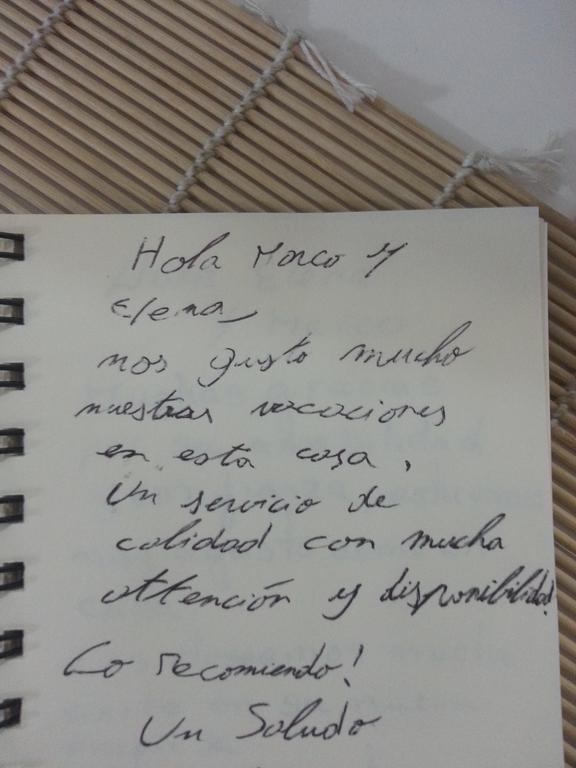 Hola Marco y
Elena
nos gusto mucho
nuestras vacaciones
en esta casa.
Un servicio de
calidad con mucha
attención y disponibilidad!
Lo recomiendo!
Un Saludo